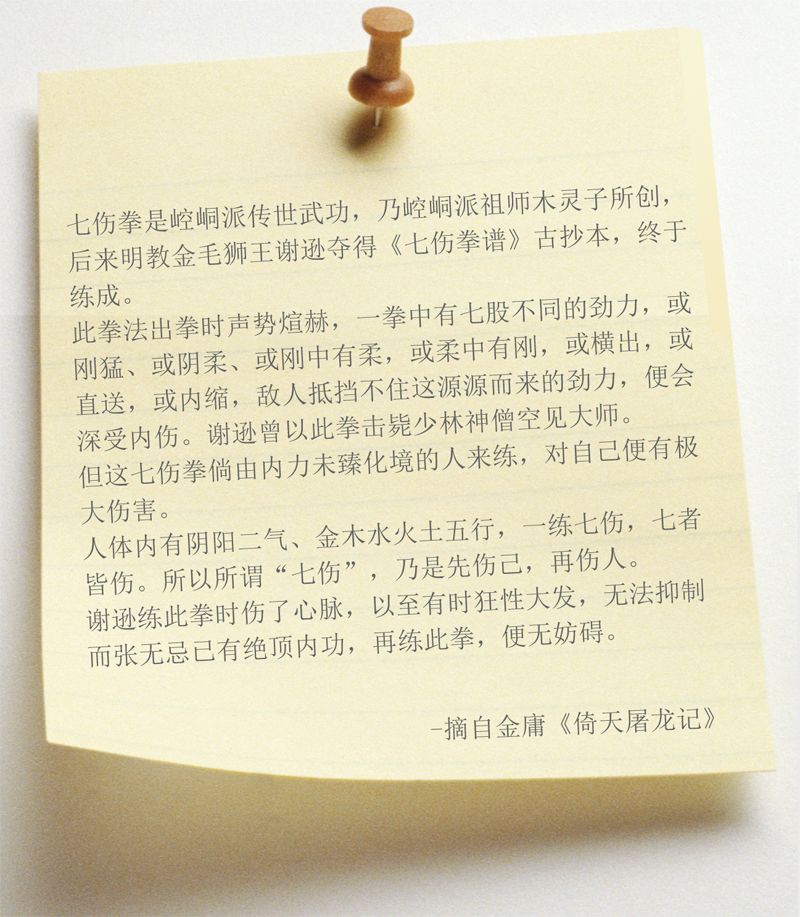 七伤拳是崆峒派传世武功，乃崆峒派祖师木灵子所创，
后来明教金毛狮王谢逊夺得《七伤拳谱》古抄本，终于
练成。
此拳法出拳时声势煊赫，一拳中有七股不同的劲力，或
刚猛、或阴柔、或刚中有柔，或柔中有刚，或横出，或
直送，或内缩，敌人抵挡不住这源源而来的劲力，便会
深受内伤。谢逊曾以此拳击毙少林神僧空见大师。
但这七伤拳倘由内力未臻化境的人来练，对自己便有极
大伤害。
人体内有阴阳二气、金木水火土五行，一练七伤，七者
皆伤。所以所谓“七伤”，乃是先伤己，再伤人。
谢逊练此拳时伤了心脉，以至有时狂性大发，无法抑制
而张无忌已有绝顶内功，再练此拳，便无妨碍。
-摘自金庸《倚天屠龙记》